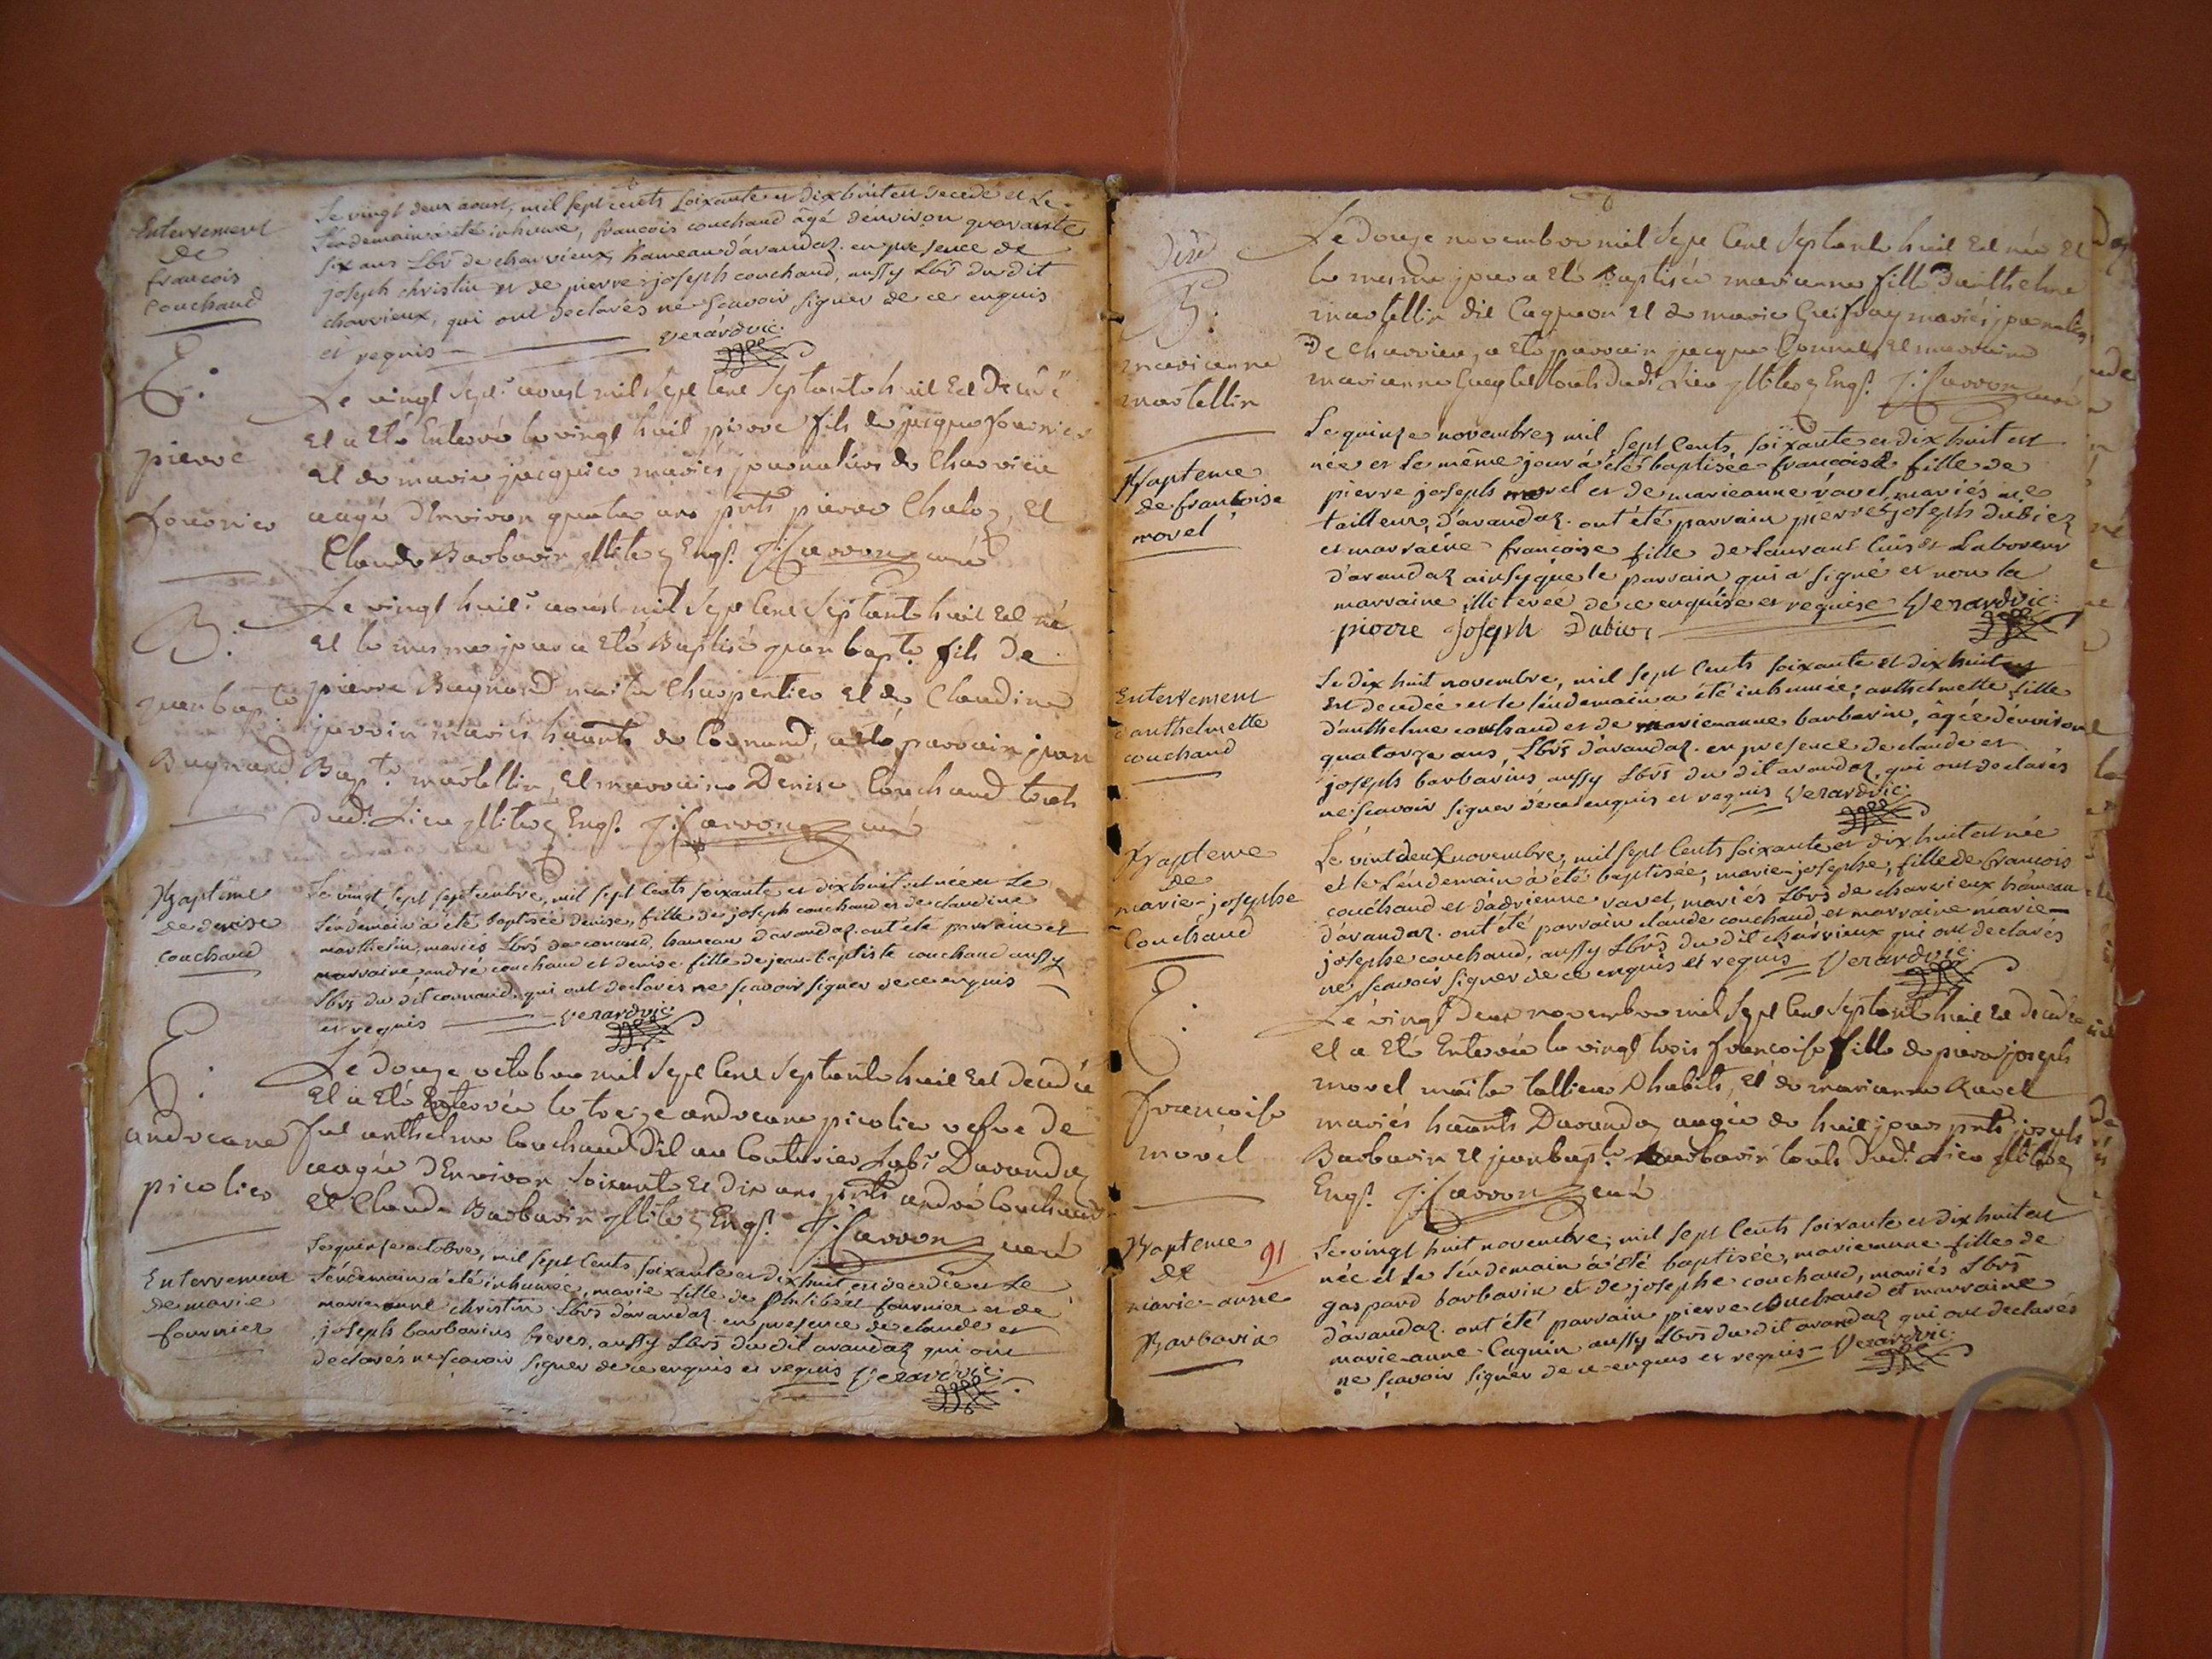 Enterrement
de
francois
couchand
Le vingt deux aoust, mil sept cents soixante et dix huit est decedé et le
lendemain a été inhumé, francois couchand âgé denviron quarante
six ans Lbr̃ de charvieux, hameau d'avandaz. en presence de
joseph christin et de pierre-joseph couchand, aussy Lbr̃s du dit
charvieux, qui ont declarés ne scavoir signer de ce enquis
et requis — Verardvic:
E:
pierre
fournier
Le vingt sept aoust mil sept cent septante huit est decedé
et a eté enterré le vingt huit pierre fils de jacque fournier
et de marie mariés journaliers de Charvieu
augé d'environ quatre ans pnts pierre Chaloz, et
Claude Barbarin illiterez Enqs. J: Carron curé
B:
jean bapte
Bugnard
Le vingt huit aoust mil sept cent septante huit est né
et le mesme jour a eté Baptisé jean bapte fils de
pierre Bugnard maitre charpentier et de Claudine
mariés haants de Counand, a eté parrain jean
Bapte martellin, et marraine Denise Couchand touts
dudt Lieu illiterez Enqs. J: Carron curé
Bapteme
de denise
couchand
Le vingt sept septembre, mil sept cents soixante et dix huit est née et le
lendemain a été baptisée denise, fille de joseph couchand et de claudine
marthelin, mariés Lbr̃s de counand, hameau d'avandaz. ont été parrain et
marraine andré couchand et denise fille de jean-baptiste couchand aussy
Lbr̃s du dit counand, qui ont declarés ne scavoir signer de ce enquis
et requis — Verardvic:
E:
andreane
picolier
Le douze octobre mil sept cent septante huit est decedée
et a eté enterrée le treize andreane picolier vefve de
feu anthelme Couchand dit au Couturier Labr Davandaz
augée d'environ soixante et dix ans pnts andré Couchand
et Claude Barbarin illiterez Enqs. J: Carron curé
Enterrement
de marie
fournier
Le quinze octobre, mil sept cents soixante et dix huit est decedée et le
lendemain a été inhumée, marie fille de philibert fournier et de
marie-anne christin Lbr̃s d'avandaz. en presence de claude et
joseph barbarins freres, aussy Lbr̃s du dit avandaz qui ont
declarés ne scavoir signer de ce enquis et requis Verardvic:
B:
marianne
martellin
Le douze novembre mil sept cent septante huit est née et
le mesme jour a eté Baptisée marianne fille d'anthelme
martellin dit Cagneon et de marie mariés journaliers
De Charvieu, a eté parrain jacque et marraine
marianne touts dudt Lieu illiterez Enqs. J: Carron curé
Bapteme
de francoise
morel
Le quinze novembre, mil sept cents, soixante et dix huit est
née et le même jour a été baptisée francoise fille de
pierre joseph morel et de marieanne ravel, mariés me
tailleur, d'avandaz. ont été parrain pierre-joseph dubiez
et marraine francoise fille de laurant laboreur
d'avandaz ainsy que le parrain qui a signé et non la
marraine illiterée de ce enquise et requise Verardvic:
pierre Joseph Dubiez
Enterrement
d'anthelmette
couchand
Le dix huit novembre, mil sept cents soixante et dix huit est
est decedée et le lendemain a été inhumée, anthelmette, fille
d'anthelme couchand et de marieanne barbarin, âgée d'environ
quatorze ans, Lbr̃s d'avandaz. en presence de claude et
joseph barbarins aussy Lbr̃s du dit avandaz, qui ont declarés
ne scavoir signer de ce enquis et requis Verardvic:
Bapteme
de
marie-josephe
Couchand
Le vint deux novembre, mil sept cents soixante et dix huit est née
et le lendemain a été baptisée, marie-josephe, fille de francois
couchand et d'adrienne ravel, mariés Lbr̃s de charvieux hameau
d'avandaz. ont été parrain claude couchand, et marraine marie-
josephe couchand, aussy Lbr̃s du dit charvieux qui ont declarés
ne scavoir signer de ce enquis et requis — Verardvic:
E:
francoise
morel
Le vingt deux novembre mil sept cent septante huit est decedée
et a eté Enterrée le vingt trois francoise fille de pierre joseph
morel maitre tallieur D'habits, et de marianne Ravel
mariés haants Davandaz augée de huit jours pnts joseph
Barbarin et jean bapte Barbarin touts dudt Lieu illiterez
Enqs. J: Carron curé
Bapteme
de
marie-anne
Barbarin
91
Le vingt huit novembre, mil sept cents soixante et dix huit est
née et le lendemain a été baptisée, marieanne fille de
gaspard barbarin et de josephe couchand, mariés Lbr̃s
d'avandaz. ont été parrain pierre couchand et marraine
marie-anne Caguin aussy Lbr̃s du dit avandaz qui ont declarés
ne scavoir signer de ce enquis et requis — Verardvic: